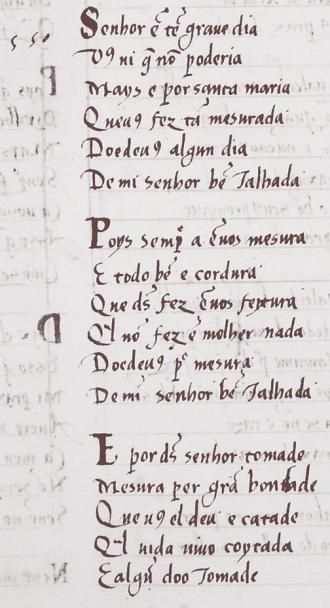 550
Senhor ē tē graue dia
Uꝰ ui q̄ nō poderia
Mays e por santa maria
Que uꝰ fez tā mesurada
Doedeuꝰ algun dia
De mi senhor bē Talhada
Poys semp̄ a ē uos mesura
E todo bē e cordura
Que d̄s fez ē uos feytura
Q̄l nō fez ē molher nada
Doedeuꝰ p̄ mesura
De mi senhor bē Talhada
E por d̄s senhor tomade
Mesura per grā bondade
Que uꝰ el deu e catade
Q̄l uida uiuo coytada
E algū doo Tomade